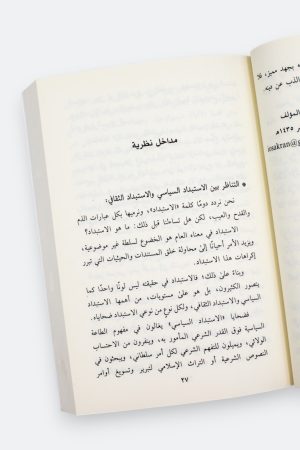 مداخل نظرية
● التناظر بين الاستبداد السياسي والاستبداد الثقافي:
نحن نردد دومًا كلمة «الاستبداد»، ونرميها بكل عبارات الذم
والقدح والعيب، لكن هل تساءلنا قبل ذلك: ما هو الاستبداد؟
الاستبداد في معناه العام هو الخضوع لسلطة غير موضوعية،
ويزيد الأمر أحيانًا إلى محاولة خلق المستندات والحيثيات التي تبرر
إكراهات هذا الاستبداد.
وبناءً على ذلك؛ فالاستبداد في حقيقته ليس لونًا واحدًا كما
يتصور الكثيرون، بل هو على مستويات، من أهمها الاستبداد
السياسي والاستبداد الثقافي، ولكل نوع من نوعي الاستبداد ضحاياه.
فضحايا «الاستبداد السياسي» يغالون في مفهوم الطاعة
السياسية فوق القدر الشرعي المأمور به، وينفرون من الاحتساب
الولائي، ويميلون للتفهم الشرعي لكل أمر سلطاني، ويبحثون في
النصوص الشرعية أو التراث الإسلامي لتبرير وتسويغ أوامر
٢٧
بجهد مميز، فلا
الذب عن دينه.
المؤلف
١٤٣٥هـ
iosakran@g